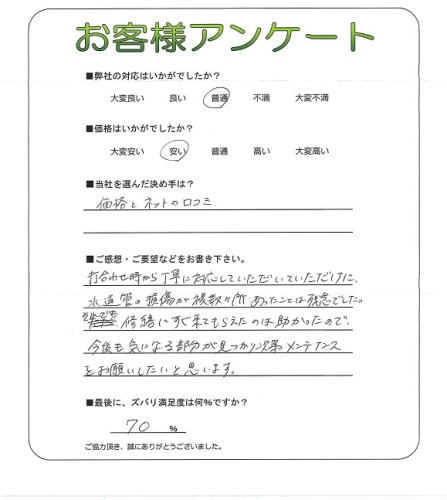 お客様アンケート
■弊社の対応はいかがでしたか?
大変良い 良い 普通 不満 大変不満
■価格はいかがでしたか?
大変安い 安い 普通 高い 大変高い
■当社を選んだ決め手は?
価格とネットの口コミ.
■ご感想・ご要望などをお書き下さい。
打合わせ時から丁寧に対応していただいていただけに、
水道管の損傷が複数ヶ所あったことは残念でした。
それでも 修繕にすぐ来てもらえたのは助かったので、
今後も気になる部分が見つかり次第メンテナンス
をお願いしたいと思います。
■最後に、ズバリ満足度は何%ですか?
70 %
ご協力頂き、誠にありがとうございました。